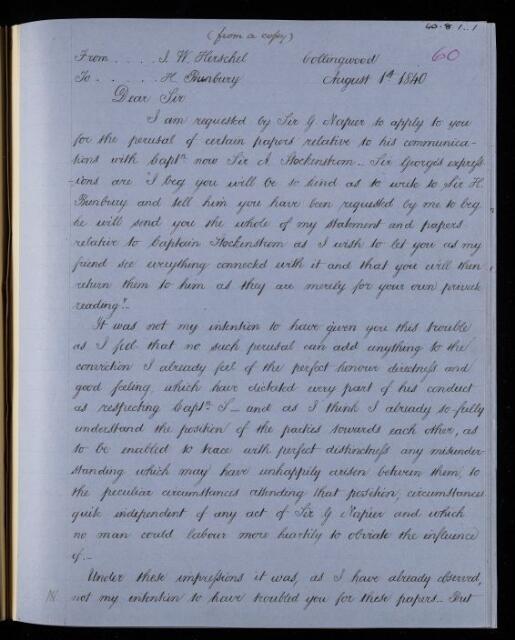 40.8.1..1
(from a copy)
60
From . . . . J. W. Herschel Collingwood
To . . . . . H. Bunbury August 1st 1840
Dear Sir
I am requested by Sir G Napier to apply to you
for the perusal of certain papers relative to his communica-
-tions with Captn now Sir A. Stockenstrom _ Sir George's express-
-ions are "I beg you will be so kind as to write to Sir H.
Bunbury and tell him you have been requested by me to beg
he will send you the whole of my statement and papers
relative to Captain Stockenstrom as I wish to let you as my
friend see everything connected with it and that you will then
return them to him as they are merely for your own private
reading" _
It was not my intention to have given you this trouble
as I feel that no such perusal can add anything to the
conviction I already feel of the perfect honour directness and
good feeling which have dictated every part of his conduct
as respecting Captn S _ and as I think I already so fully
understand the position of the parties towards each other, as
to be enabled to trace with perfect distinctness any misunder-
standing which may have unhappily arisen between them, to
the peculiar circumstances attending that position, circumstances
quite independent of any act of Sir G Napier and which
no man could labour more heartily to obviate the influence
of _
Under these impressions it was, as I have already observed,
not my intention to have troubled you for these papers _ But